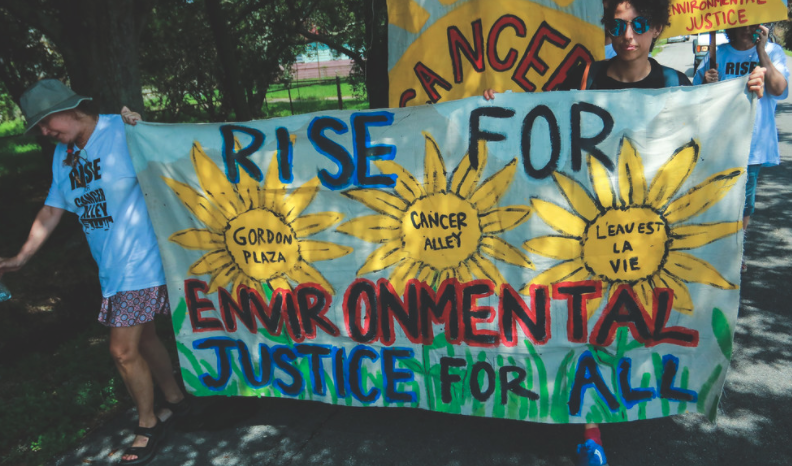 ENVIRONMENTAL
JUSTICE
CANCER
RISE
RISE
CANCER
ALLEY
RISE FOR
GORDON
PLAZA
CANCER
ALLEY
L'EAU EST
LA
VIE
ENVIRONMENTAL
JUSTICE FOR ALL